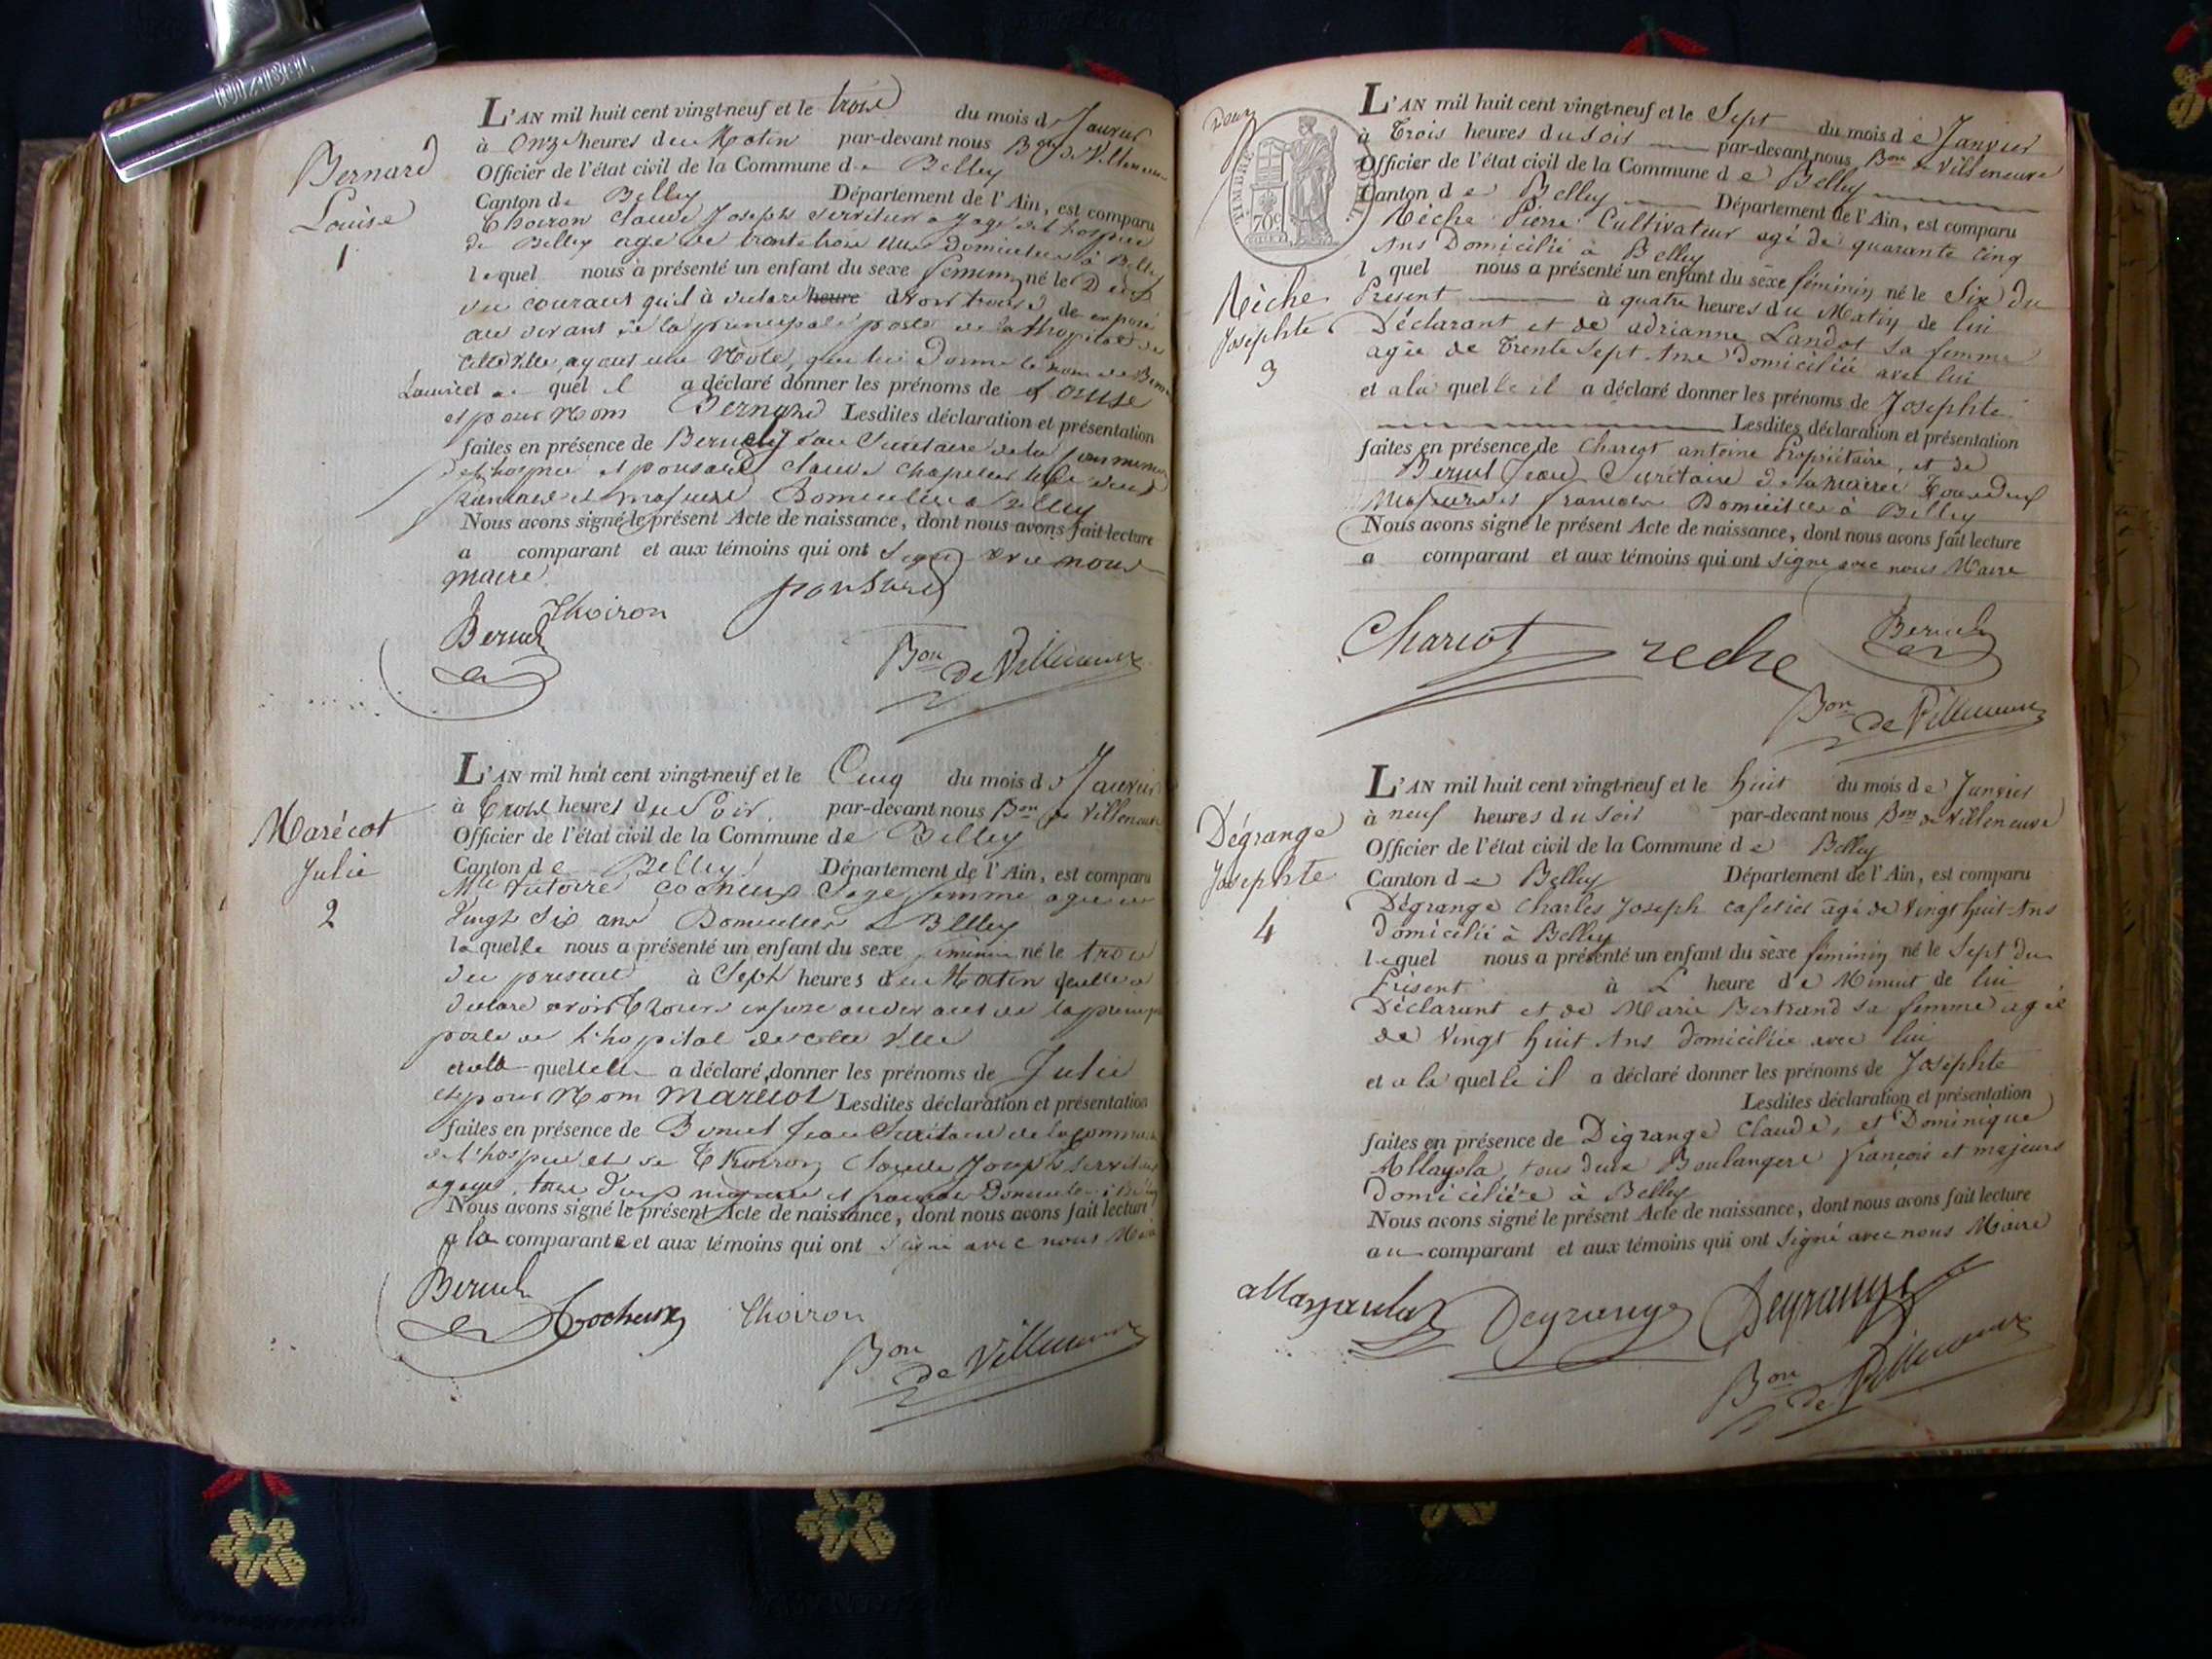 Bernard
Louise
1
L'AN mil huit cent vingt-neuf et le trois du mois d Janvier
à Onze heures du Matin par-devant nous Bon de Villeneuve
Officier de l'état civil de la Commune de Belley
Canton de Belley Département de l'Ain, est comparu
Thoiron Claude Joseph serviteur a gage de l'hospice
de Belley agé de trente trois ans domicilié à Belley
lequel nous a présenté un enfant du sexe feminin né le Deux
du courant qu'il à déclaré heure avoir trouvé exposé
au devant de la principale porte de l'hopital de
cette Ville, ayant une Note, donne le nom de
quel il a déclaré donner les prénoms de Louise
et pour Nom Bernard Lesdites déclaration et présentation
faites en présence de Bernel Jean Secretaire de la
de l'hospice et ponsard Claude Chapelier tous deux
et majeurs Domiciliés a Belley
Nous avons signé le présent Acte de naissance, dont nous avons fait lecture
a comparant et aux témoins qui ont signé avec nous
maire
Thoiron ponsard
Bernel
Bon de Villeneuve
Marécot
Julie
2
L'AN mil huit cent vingt-neuf et le Cinq du mois de Janvier
à Trois heures du Soir par-devant nous Bon de Villeneuve
Officier de l'état civil de la Commune de Belley
Canton de Belley Département de l'Ain, est comparu
Mle Victoire Cocheux Sage femme agée de
Vingt Six ans Domiciliée a Belley
laquelle nous a présenté un enfant du sexe féminin né le trois
du présent à Sept heures du Matin quelle a
déclaré avoir trouvé exposé au devant de la principale
porte de l'hopital de cette Ville
quelle elle a déclaré donner les prénoms de Julie
et pour Nom Marecot Lesdites déclaration et présentation
faites en présence de Bernel Jean Secrétaire de la
de l'hospice et de Thoiron Claude Joseph serviteur
agages, tous deux majeurs et français Domiciliés à Belley
Nous avons signé le présent Acte de naissance, dont nous avons fait lecture
a la comparante et aux témoins qui ont signé avec nous Maire
Bernel
Cocheux Thoiron
Bon de Villeneuve
Deux
TIMBRE ROYAL
70c
Rèche
Josephte
3
L'AN mil huit cent vingt-neuf et le Sept du mois de Janvier
à Trois heures du soir par-devant nous Bon de Villeneuve
Officier de l'état civil de la Commune de Belley
Canton de Belley Département de l'Ain, est comparu
Rèche Pierre Cultivateur agé de quarante Cinq
Ans Domicilié à Belley
l quel nous a présenté un enfant du sexe féminin né le Six du
Présent à quatre heures du Matin de lui
Déclarant et de adrianne Landot sa femme
agée de Trente Sept Ans Domiciliée avec lui
et a la quelle il a déclaré donner les prénoms de Josephte
Lesdites déclaration et présentation
faites en présence de Chariot antoine Propriétaire, et de
Bernel Jean Secrétaire de la mairie Tous deux
Majeurs et français Domiciliés à Belley
Nous avons signé le présent Acte de naissance, dont nous avons fait lecture
a comparant et aux témoins qui ont signé avec nous Maire
Chariot reche Bernel
Bon de Villeneuve
Dégrange
Josephte
4
L'AN mil huit cent vingt-neuf et le huit du mois de Janvier
à neuf heures du soir par-devant nous Bon de Villeneuve
Officier de l'état civil de la Commune de Belley
Canton de Belley Département de l'Ain, est comparu
Dégrange Charles Joseph cafetier agé de Vingt huit Ans
domicilié à Belley
lequel nous a présenté un enfant du sexe féminin né le Sept du
Présent à L' heure de Minuit de lui
Déclarant et de Marie Bertrand sa femme agée
de Vingt huit Ans domiciliée avec lui
et a la quelle il a déclaré donner les prénoms de Josephte
Lesdites déclaration et présentation
faites en présence de Dégrange Claude, et Dominique
Allayola, tous deux Boulangers français et majeurs
Domiciliés à Belley
Nous avons signé le présent Acte de naissance, dont nous avons fait lecture
au comparant et aux témoins qui ont signé avec nous Maire
Degrange Degrange
Bon de Villeneuve